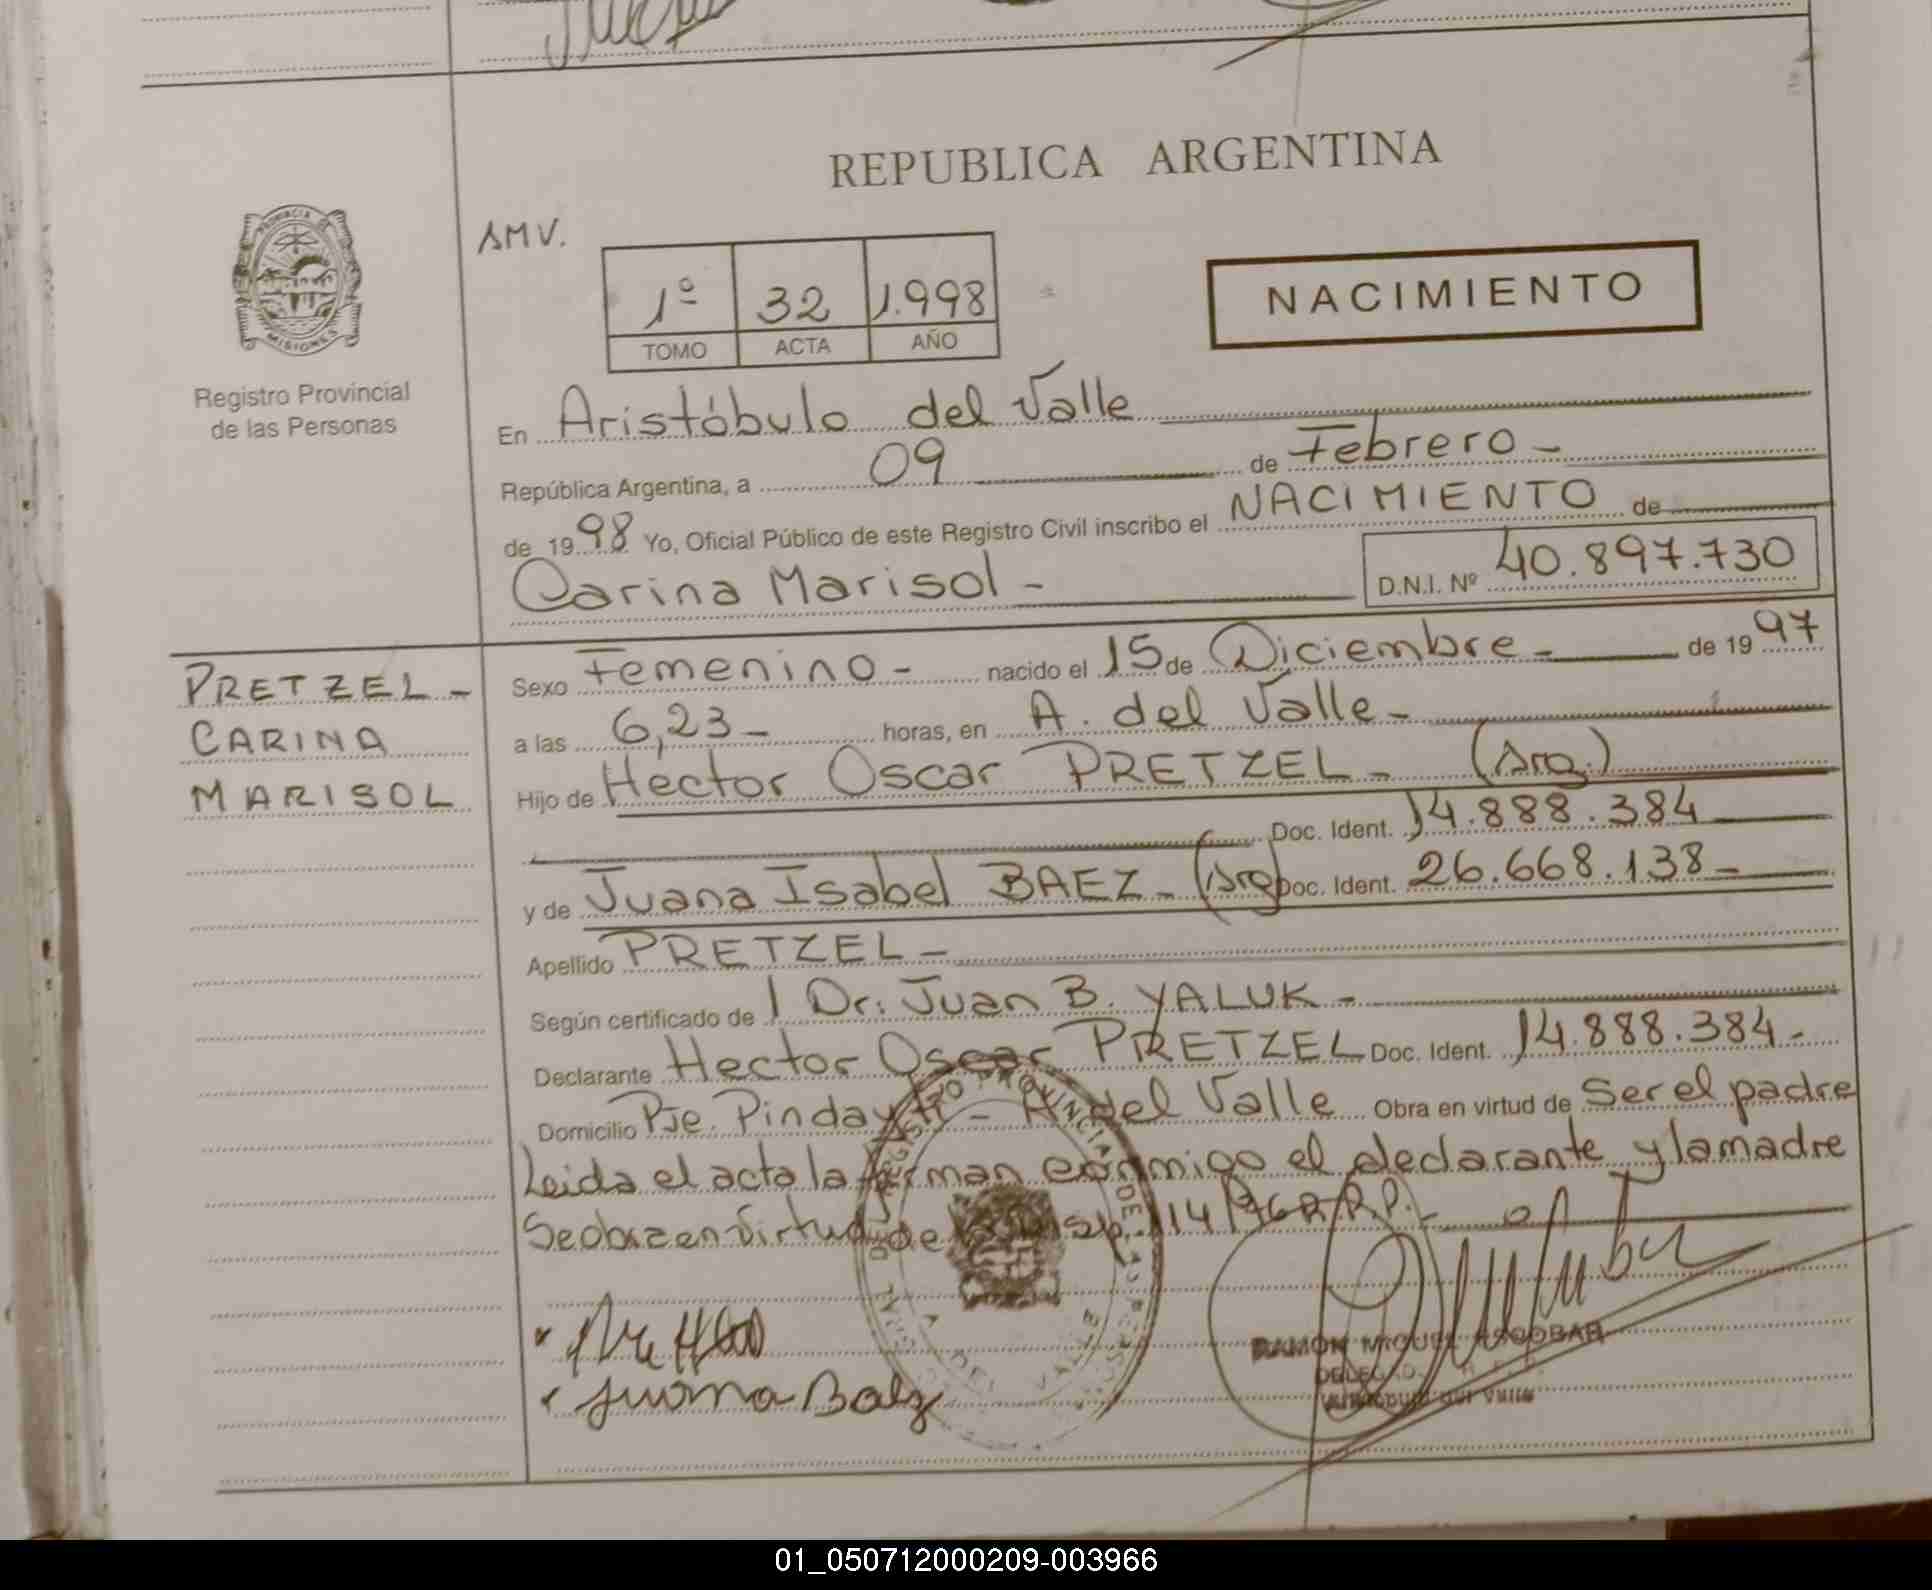 REPUBLICA ARGENTINA
PROVINCIA DE
MISIONES
Registro Provincial
de las Personas
AMV.
1º 32 1.998
TOMO ACTA AÑO
NACIMIENTO
En Aristóbulo del Valle
República Argentina, a 09 de Febrero -
de 1998 Yo, Oficial Público de este Registro Civil inscribo el NACIMIENTO de
Carina Marisol - D.N.I. Nº 40.897.730
PRETZEL -
CARINA
MARISOL
Sexo Femenino - nacido el 15 de Diciembre - de 1997
a las 6,23 - horas, en A. del Valle -
Hijo de Hector Oscar PRETZEL - (Arg.)
Doc. Ident. 14.888.384
y de Juana Isabel BAEZ - (Arg) Doc. Ident. 26.668.138 -
Apellido PRETZEL -
Según certificado de / Dr. Juan B. YALUK -
Declarante Hector Oscar PRETZEL Doc. Ident. 14.888.384 -
Domicilio Pje. Pindayti - A. del Valle Obra en virtud de Ser el padre
Leida el acta la firman conmigo el declarante y la madre
Se obra en virtud de 114/96 R.R.P. -
Juana Baez
RAMON MIGUEL ESCOBAR
01_050712000209-003966